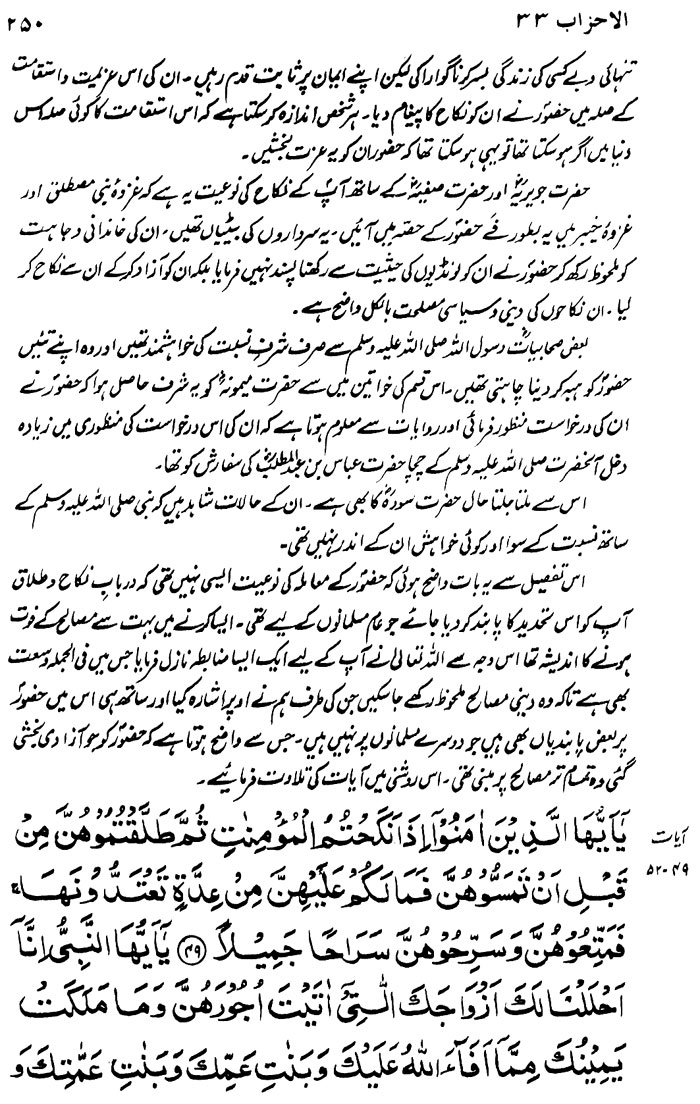 الاحزاب ۳۳
۲۵۰
تنہائی و بے کسی کی زندگی بسر کرنا گوارا کی لیکن اپنے ایمان پر ثابت قدم رہیں۔ ان کی اس عزیمت و استقامت
کے صلہ میں حضورؐ نے ان کو نکاح کا پیغام دیا۔ ہر شخص اندازہ کر سکتا ہے کہ اس استقامت کا کوئی صلہ اس
دنیا میں اگر ہو سکتا تھا تو یہی ہو سکتا تھا کہ حضورؐ ان کو یہ عزت بخشیں۔
حضرت جویریہؓ اور حضرت صفیہؓ کے ساتھ آپؐ کے نکاح کی نوعیت یہ ہے کہ غزوۂ بنی مصطلق اور
غزوۂ خیبر میں یہ بطور فَے حضورؐ کے حصہ میں آئیں۔ یہ سرداروں کی بیٹیاں تھیں۔ ان کی خاندانی وجاہت
کو ملحوظ رکھ کر حضورؐ نے ان کو لونڈیوں کی حیثیت سے رکھنا پسند نہیں فرمایا بلکہ ان کو آزاد کرکے ان سے نکاح کر
لیا۔ ان نکاحوں کی دینی و سیاسی مصلحت بالکل واضح ہے۔
بعض صحابیاتؓ رسول اللہ صلی اللہ علیہ وسلم سے صرف شرفِ نسبت کی خواہشمند تھیں اور وہ اپنے تئیں
حضورؐ کو ہبہ کر دینا چاہتی تھیں۔ اس قسم کی خواتین میں سے حضرت میمونہؓ کو یہ شرف حاصل ہوا کہ حضورؐ نے
ان کی درخواست منظور فرمائی اور روایات سے معلوم ہوتا ہے کہ ان کی اس درخواست کی منظوری میں زیادہ
دخل آنحضرت صلی اللہ علیہ وسلم کے چچا حضرت عباس بن عبدالمطلبؓ کی سفارش کو تھا۔
اس سے ملتا جلتا حال حضرت سودہؓ کا بھی ہے۔ ان کے حالات شاہد ہیں کہ نبی صلی اللہ علیہ وسلم کے
ساتھ نسبت کے سوا اور کوئی خواہش ان کے اندر نہیں تھی۔
اس تفصیل سے یہ بات واضح ہوئی کہ حضورؐ کے معاملہ کی نوعیت ایسی نہیں تھی کہ دربابِ نکاح و طلاق
آپ کو اس تحدید کا پابند کر دیا جائے جو عام مسلمانوں کے لیے تھی۔ ایسا کرنے میں بہت سے مصالح کے فوت
ہونے کا اندیشہ تھا اس وجہ سے اللہ تعالیٰ نے آپ کے لیے ایک ایسا ضابطہ نازل فرمایا جس میں فی الجملہ وسعت
بھی ہے تاکہ وہ دینی مصالح ملحوظ رکھے جا سکیں جن کی طرف ہم نے اوپر اشارہ کیا اور ساتھ ہی اس میں حضورؐ
پر بعض پابندیاں بھی ہیں جو دوسرے مسلمانوں پر نہیں ہیں۔ جس سے واضح ہوتا ہے کہ حضورؐ کو جو آزادی بخشی
گئی وہ تمام تر مصالح پر مبنی تھی۔ اس روشنی میں آیات کی تلاوت فرمائیے۔
آیات
۴۹-۵۲
يٰۤاَيُّهَا الَّذِيْنَ اٰمَنُوْۤا اِذَا نَكَحْتُمُ الْمُؤْمِنٰتِ ثُمَّ طَلَّقْتُمُوْهُنَّ مِنْ
قَبْلِ اَنْ تَمَسُّوْهُنَّ فَمَا لَكُمْ عَلَيْهِنَّ مِنْ عِدَّةٍ تَعْتَدُّوْنَهَا ۚ
فَمَتِّعُوْهُنَّ وَسَرِّحُوْهُنَّ سَرَاحًا جَمِيْلًا ﴿۴۹﴾ يٰۤاَيُّهَا النَّبِيُّ اِنَّاۤ
اَحْلَلْنَا لَكَ اَزْوَاجَكَ الّٰتِيْۤ اٰتَيْتَ اُجُوْرَهُنَّ وَمَا مَلَكَتْ
يَمِيْنُكَ مِمَّاۤ اَفَآءَ اللّٰهُ عَلَيْكَ وَبَنٰتِ عَمِّكَ وَبَنٰتِ عَمّٰتِكَ وَ